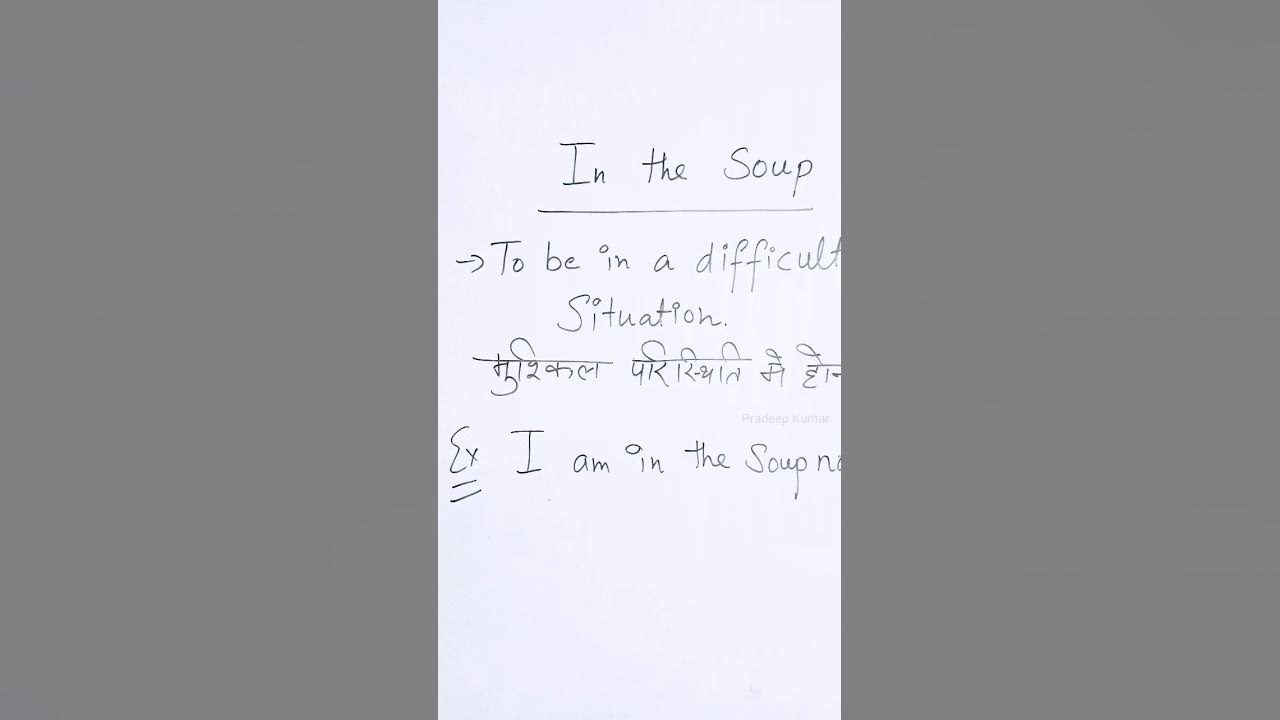 In the Soup
→ To be in a difficult
Situation.
मुश्किल परिस्थिति मे
Pradeep Kumar
Ex I am in the Soup